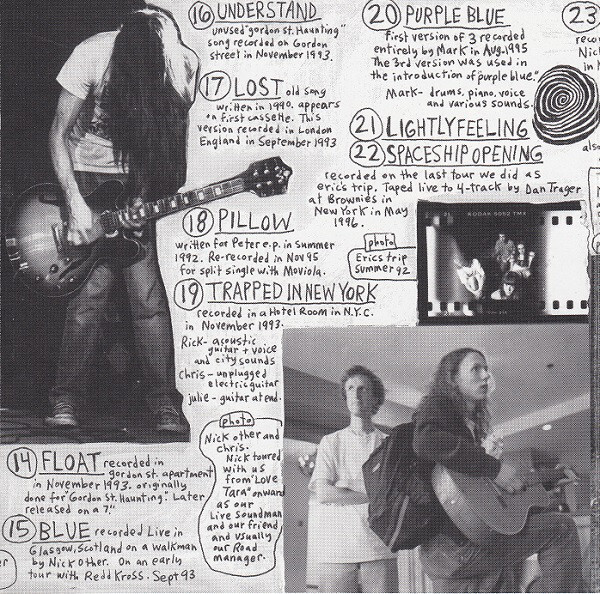 16 UNDERSTAND
unused "gordon st. Haunting"
song recorded on Gordon
street in November 1993.
17 LOST old song
written in 1990. appears
on first cassette. This
version recorded in London
England in September 1993
18 PILLOW
written for Peter e.p. in Summer
1992. Re-recorded in Nov 95
for split single with Moviola.
19 TRAPPED IN NEW YORK
recorded in a Hotel Room in N.Y.C.
in November 1993.
Rick- acoustic
guitar + voice
and city sounds
Chris- unplugged
electric guitar
julie- guitar at end.
14 FLOAT recorded in
gordon st. apartment
in November 1993. originally
done for "Gordon St. Haunting". Later
released on a 7."
15 BLUE recorded Live in
Glasgow, Scotland on a walkman
by Nick Other. On an early
tour with Redd Kross. Sept 93
photo
Nick other and
chris.
Nick toured
with us
from "Love
Tara" onward
as our
Live soundman
and our friend
and usually
our Road
manager.
20 PURPLE BLUE
first version of 3 recorded
entirely by Mark in Aug. 1995
The 3rd version was used in
the introduction of "purple blue."
Mark- drums, piano, voice
and various sounds.
21 LIGHTLY FEELING
22 SPACESHIP OPENING
recorded on the last tour we did as
eric's trip. Taped live to 4-track by Dan Trager
at Brownies in
New York in May
1996.
photo
Erics trip
Summer 92
KODAK 5052 TMX
23
Nick
in
also